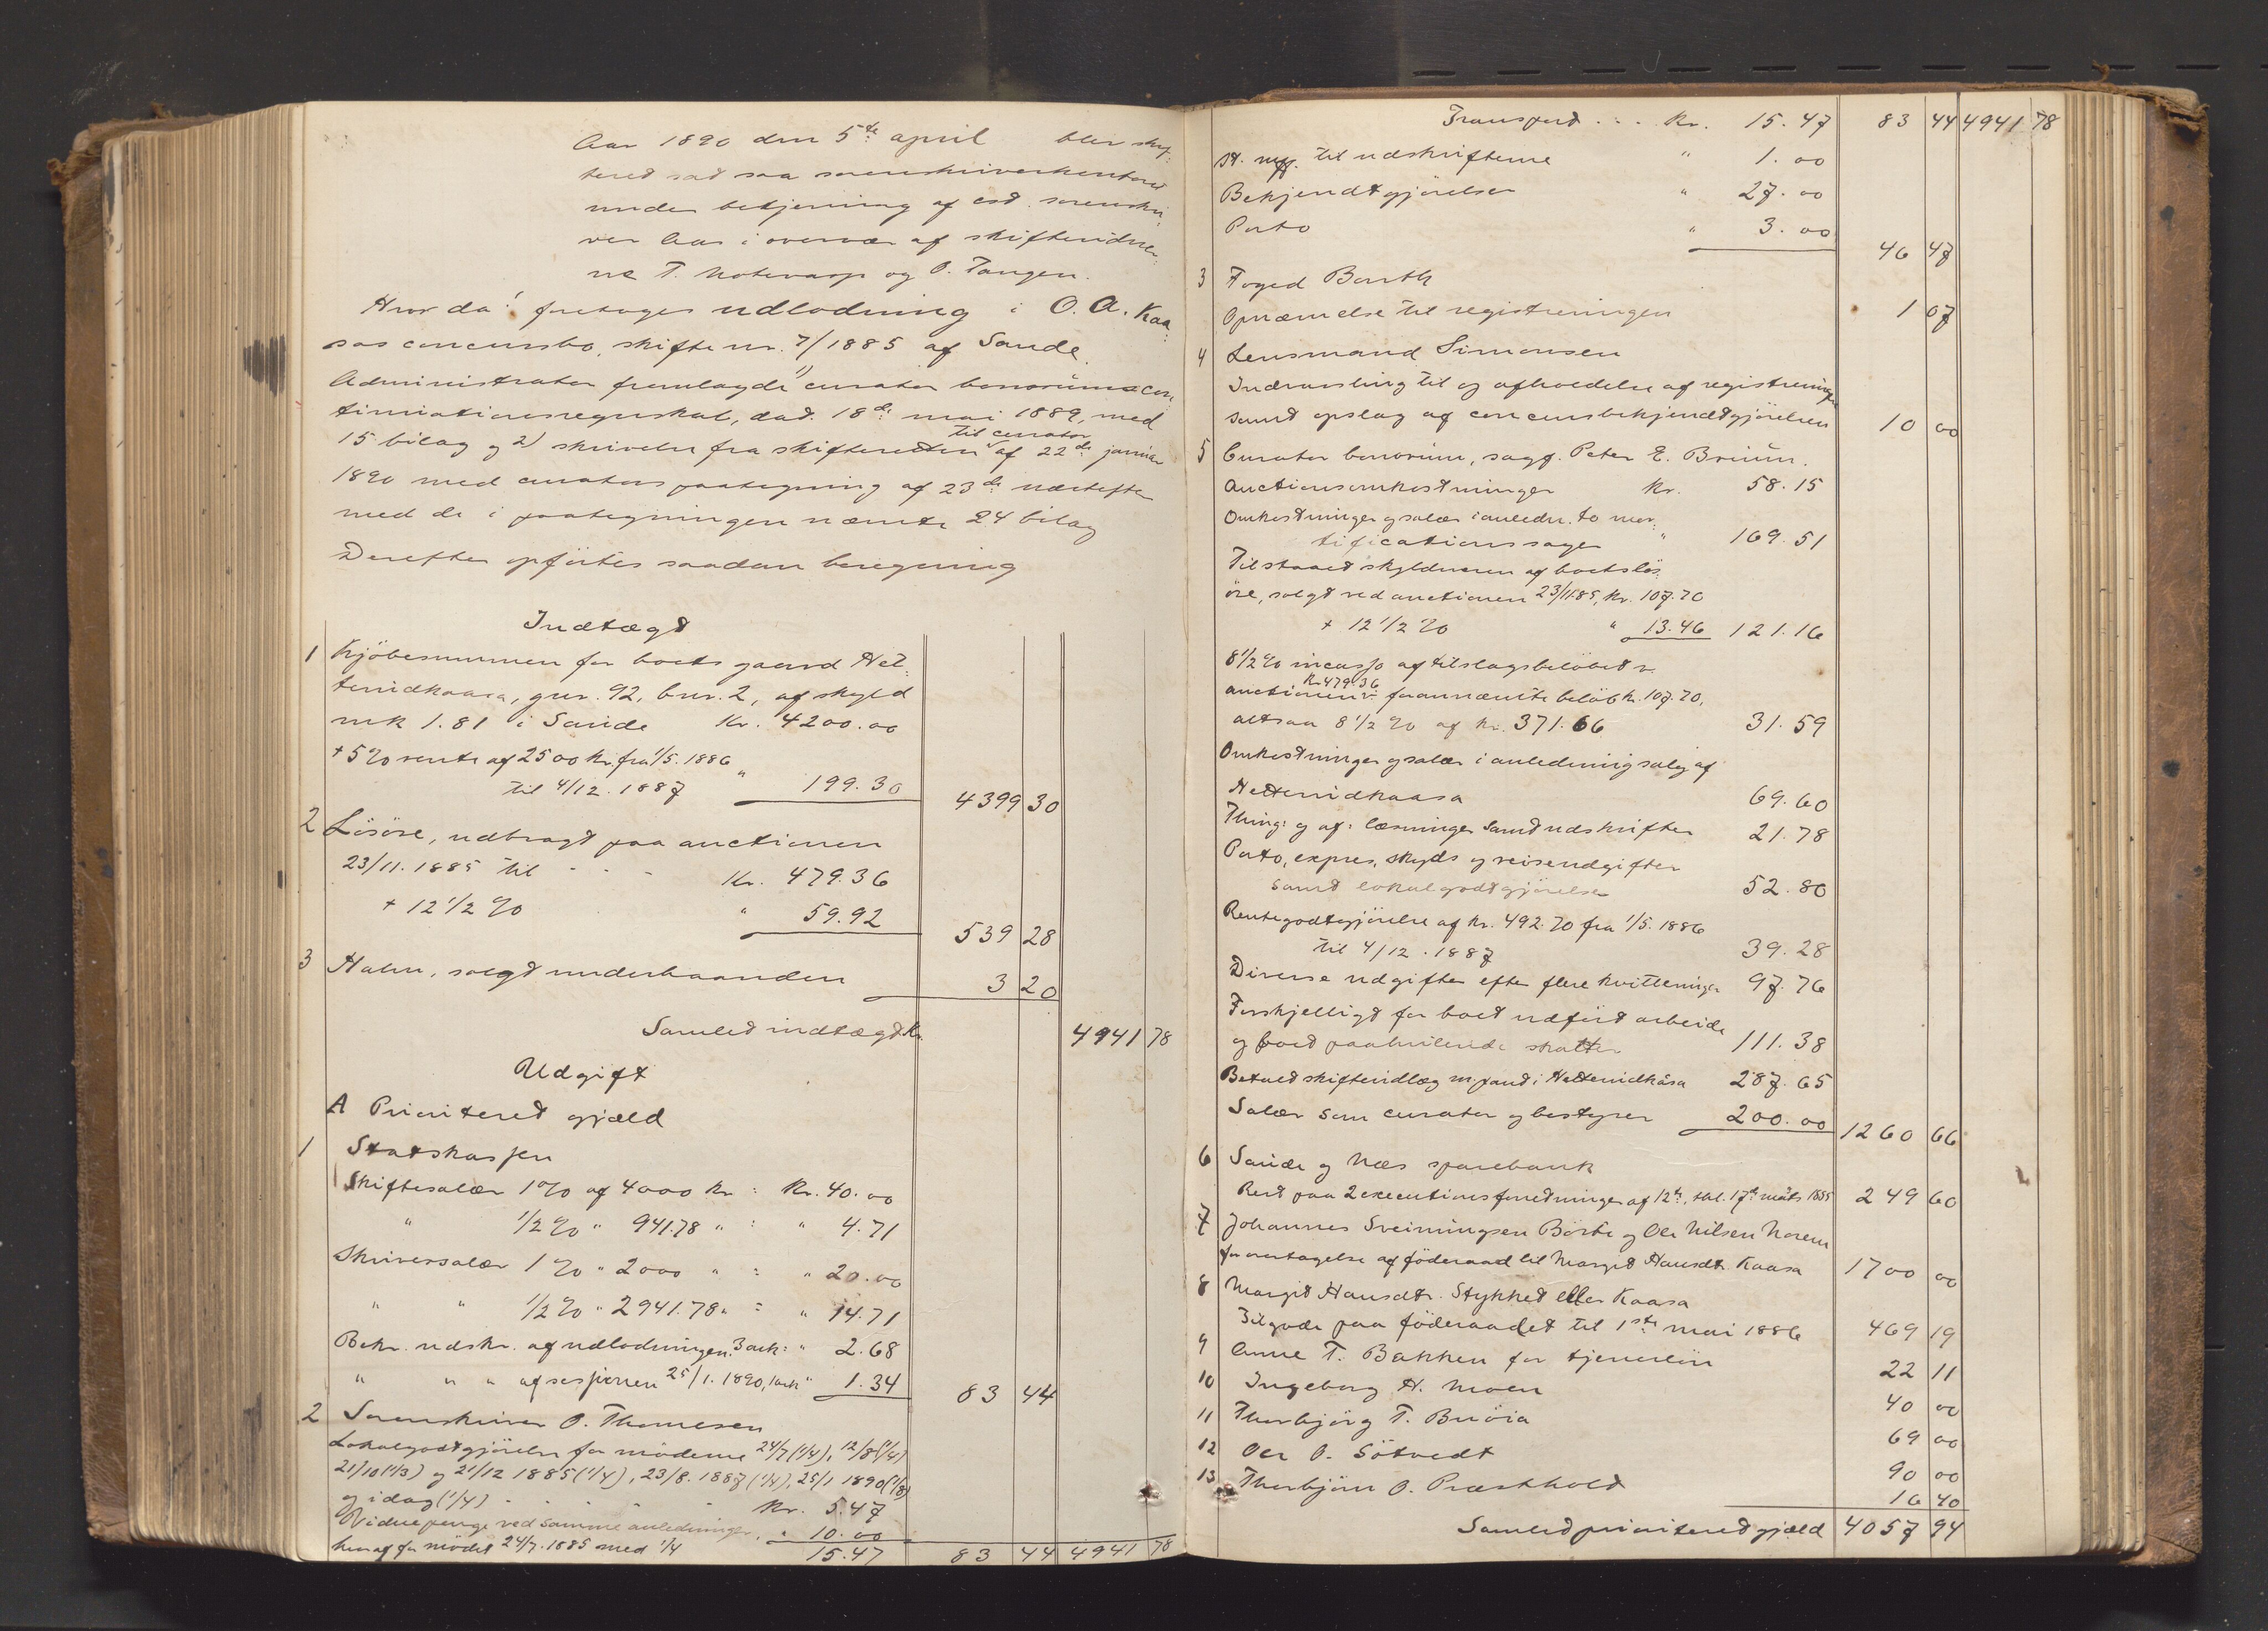 Aar 1890 den 5te april blev skif-
teret sat paa sorenskriverkontoret
under betjening af cst. sorenskri-
ver Aas i overvær af skiftevidner-
ne T. Notevarp og O. Tangen.
Hvor da: foretoges udlodning i O. A. Kaa-
sas concursbo, skifte nr. 7/1885 af Sande.
Administrator fremlagde 1) curator bonorums con-
tinuationsregnskab, dat. 18de mai 1889, med
til curator
15 bilag og 2) skrivelse fra skifteretten af 22de januar
1890 med curators paategning af 23de næstefter
med de i paategningen nævnte 24 bilag
Derefter opførtes saadan beregning
Indtægt
1 Kjöbesummen for boets gaard Het-
tenidkaasa, gnr. 92, bnr. 2, af skyld
mk 1.81 i Sande Kr. 4200.00
+ 5% rente af 2500 kr. fra 1/5. 1886
til 4/12. 1887 " 199.30 4399 30
2 Lösöre, udbragt paa auctionen
23/11. 1885 til - - - Kr. 479.36
+ 12 1/2 % " 59.92 539 28
3 Halm, solgt underhaanden 3 20
Samlet indtægt Kr. 4941 78
Udgift
A Prioriteret gjæld
1 Statskassen
Skiftesalær 1% af 4000 kr : Kr. 40.00
" 1/2 % " 941.78 " : " 4.71
Skriversalær 1 % " 2000 " : " 20.00
" " 1/2 % " 2941.78 " = " 14.71
Bekr. udskr. af udlodningen 3 ark : " 2.68
" " " af sessionen 25/1. 1890, 1 ark " 1.34 83 44
2 Sorenskriver O. Thomesen
Lokalgodtgjörelse for möderne 24/7 (1/4), 12/8 (1/4)
21/10 (1/3) og 21/12 1885 (1/4), 23/8. 1887 (1/4), 25/1 1890 (1/8)
og idag (1/4) - - - Kr. 5.47
Vidnepenge ved samme anledninger, " 10.00
heraf for mödet 24/7. 1885 med 1/4 15.47 83 44 4941 78
Transport . . . Kr. 15.47 83 44 4941 78
St. til udskrifterne " 1.00
Bekjendtgjörelser " 27.00
Porto " 3.00 46 47
3 Foged Barth
Opnævnelse til registreringen 1 07
4 Lensmand Simonsen
Indvarsling til og afholdelse af registreringen
samt opslag af concursbekjendtgjörelsen 10 00
5 Curator bonorum, sagf. Peter E. Bruun.
Auctionsomkostninger Kr. 58.15
Omkostninger og salær i anledn. to mor-
tificationssager " 169.51
Tilstaaet skyldneren af boets lös-
öre, solgt ved auctionen 23/11 85, Kr. 107.70
+ 12 1/2 % " 13.46 121.16
8 1/2 % incasso af tilslagsbelöbet v.
Kr 479.36
auctionen ÷ forannævnte belöb kr. 107.70,
altsaa 8 1/2 % af kr. 371.66 31.59
Omkostninger og salær i anledning salg af
Hettenidkaasa 69.60
Thing- og af- læsninger samt udskrifter 21.78
Porto, expres, skyds og reiseudgifter
samt lokalgodtgjörelse 52.80
Rentegodtgjörelse af kr. 492.70 fra 1/5. 1886
til 4/12. 1887 39.28
Diverse udgifter efter flere kvitteringer 97.76
Forskjelligt for boet udfört arbeide
og boet paahvilende skatter 111.38
Betalt skifteudlæg m. pant i Hettenidkåsa 287.65
Salær som curator og bestyrer 200.00 1260 66
6 Sande og Næs sparebank
Rest paa 2 executionsforretninger af 12te, . 17de marts 1885 249 60
7 Johannes Sveinungsen Börte og Ole Nilsen Norem
for overtagelse af föderaad til Margit Hansdtr. Kaasa 1700 00
8 Margit Hansdtr. Stykket eller Kaasa
Tilgode paa föderaadet til 1ste mai 1886 469 19
9 Anne T. Bakken for tjenerlön 22 11
10 Ingeborg H. Moen 40 00
11 Thorbjörg T. Bruöia 69 00
12 Ole O. Sötvedt 90 00
13 Thorbjörn O. Præsthold 16 40
Samlet prioriteret gjæld 4057 94